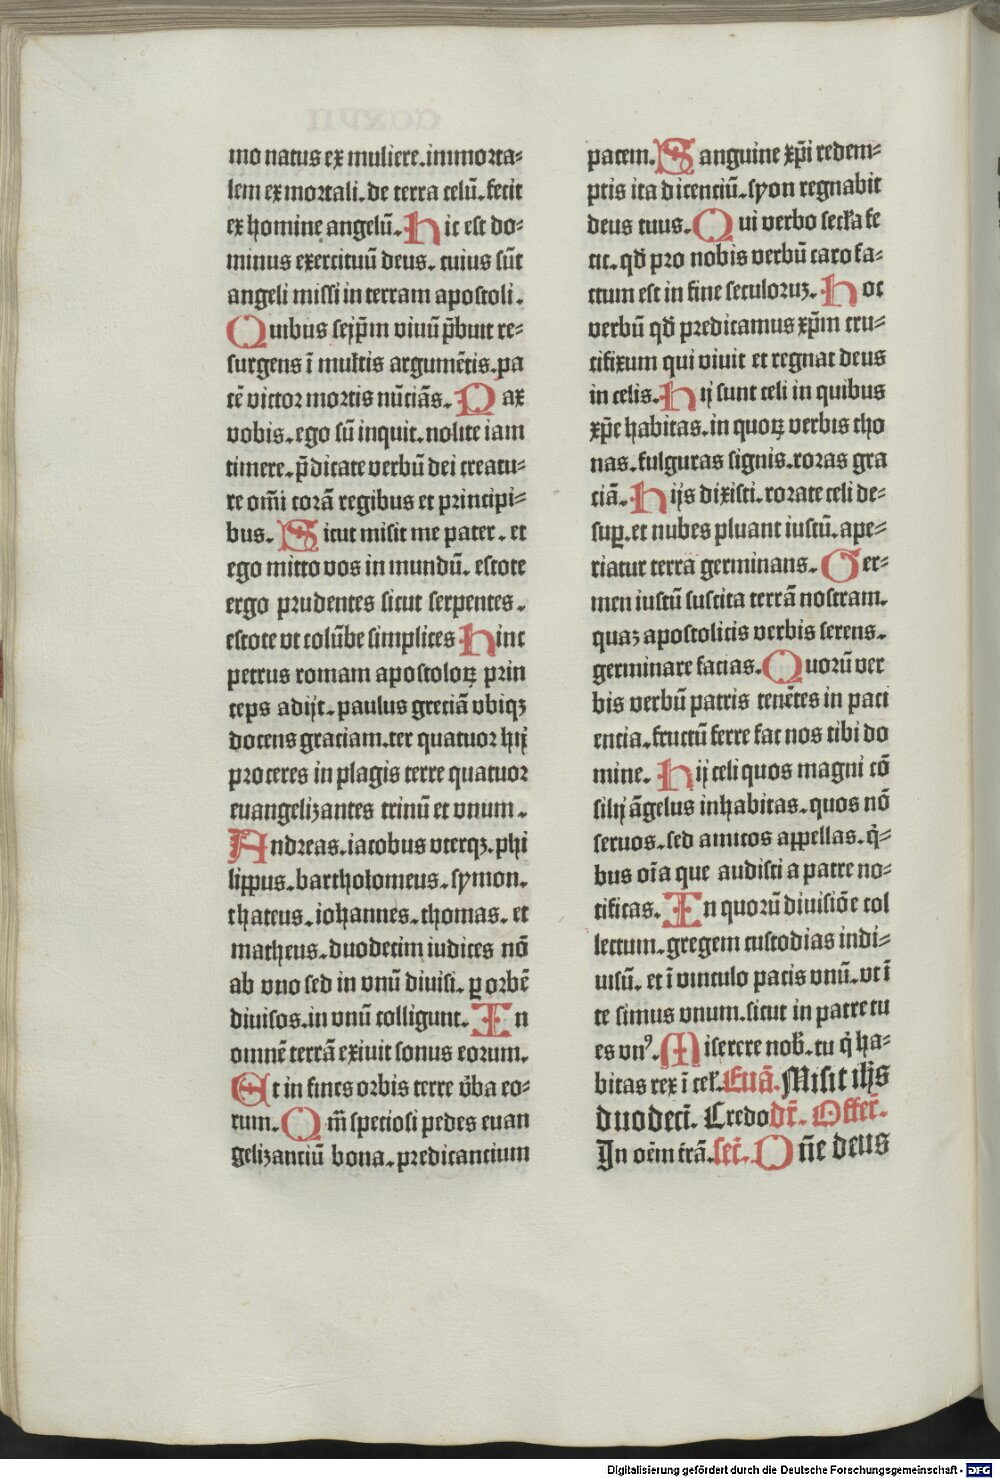 mo natus ex muliere. immorta⸗
lem ex mortali. de terra celū. fecit
ex homine angelū. Hic est do⸗
minus exercituū deus. cuius sūt
angeli missi in terram apostoli.
Quibus seip̄m viuū p̄buit re⸗
surgens ī multis argumētis. pa
cē victor mortis nūciās. Pax
vobis. ego sū inquit. nolite iam
timere. p̄dicate verbū dei creatu⸗
re om̄i corā regibus et principi⸗
bus. Sicut misit me pater. et
ego mitto vos in mundū. estote
ergo prudentes sicut serpentes.
estote vt colūbe simplices Hinc
petrus romam apostoloꝝ prin
ceps adijt. paulus greciā vbiqꝫ
docens graciam. ter quatuor hij
proceres in plagis terre quatuor
euangelizantes trinū et vnum.
Andreas. iacobus vterqꝫ. phi
lippus. bartholomeus. symon.
thateus. iohannes. thomas. et
matheus. duodecim iudices nō
ab vno sed in vnū diuisi. ꝑ orbē
diuisos. in vnū colligunt. In
omnē terrā exiuit sonus eorum.
Et in fines orbis terre v̄ba eo⸗
rum. Qm̄ speciosi pedes euan
gelizanciū bona. predicancium
pacem. Sanguine xp̄i redem⸗
ptis ita dicenciū. syon regnabit
deus tuus. Qui verbo secła fe
cit. qd̄ pro nobis verbū caro fa⸗
ctum est in fine seculoruꝫ. Hoc
verbū qd̄ predicamus xp̄m cru⸗
cifixum qui viuit et regnat deus
in celis. Hij sunt celi in quibus
xp̄e habitas. in quoꝝ verbis tho
nas. fulguras signis. roras gra
ciā. Hijs dixisti. rorate celi de⸗
suꝑ. et nubes pluant iustū. ape⸗
riatur terra germinans. Ger⸗
men iustū suscita terrā nostram.
quaꝫ apostolicis verbis serens.
germinare facias. Quorū ver
bis verbū patris tenētes in paci
encia. fructū ferre fac nos tibi do
mine. Hij celi quos magni cō
silij āgelus inhabitas. quos nō
seruos. sed amicos appellas. q̇⸗
bus oīa que audisti a patre no⸗
tificas. In quorū diuisiōe col
lectum. gregem custodias indi⸗
uisū. et ī vinculo pacis vnū. vt ī
te simus vnum. sicut in patre tu
es vnꝰ. Miserere nob̄. tu q̇ ha⸗
bitas rex ī cel̄. Euā. Misit ih̄s
duodecī. Credo dr̄. Offer̄.
In oēm t̄rā. Sec̄. One deus
Digitalisierung gefördert durch die Deutsche Forschungsgemeinschaft - DFG